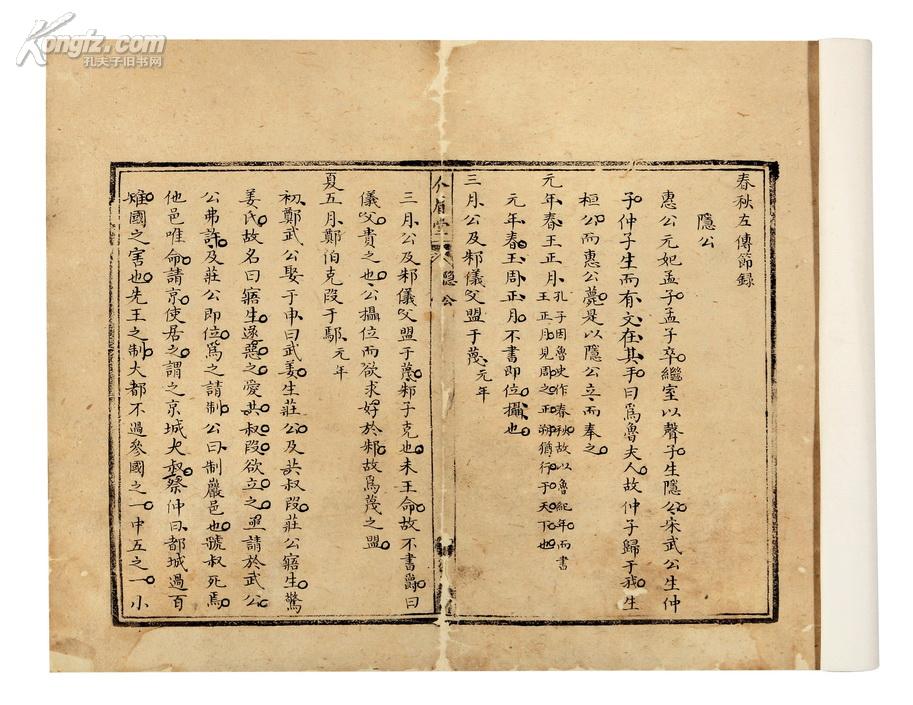 春秋左傳節録
隱公
惠公元妃孟子孟子卒繼室以聲子生隱公宋武公生仲
子仲子生而有文在其手曰爲魯夫人故仲子歸于我生
桓公而惠公薨是以隱公立而奉之
元年春王正月孔子因魯史作春秋故以魯紀年而書
王正月見周之正朔猶行于天下也
元年春王周正月不書即位攝也
三月公及邾儀父盟于蔑元年
隱公
三月公及邾儀父盟于蔑邾子克也未王命故不書爵曰
儀父貴之也公攝位而欲求好於邾故爲蔑之盟
夏五月鄭伯克段于鄢元年
初鄭武公娶于申曰武姜生莊公及共叔段莊公寤生驚
姜氏故名曰寤生遂惡之愛共叔段欲立之亟請於武公
公弗許及莊公即位爲之請制公曰制巖邑也虢叔死焉
他邑唯命請京使居之謂之京城大叔祭仲曰都城過百
雉國之害也先王之制大都不過參國之一中五之一小
Kongfz.com
孔夫子旧书网